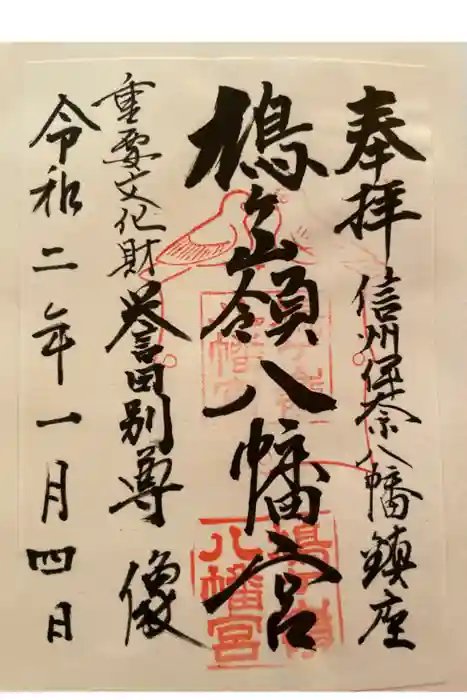 奉拝
信州伊奈八幡鎮座
鳩ヶ嶺八幡宮
重要文化財
誉田別尊像
令和二年一月四日
鳩ヶ嶺
八幡宮